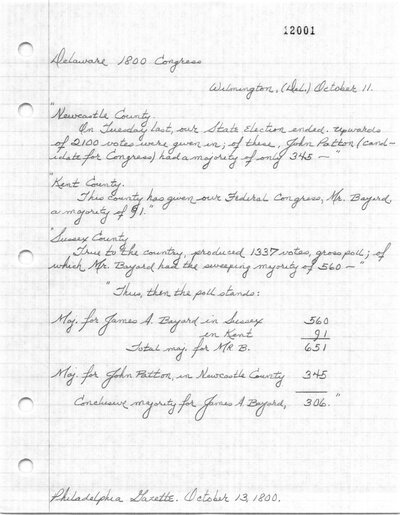 12001
Delaware 1800 Congress
Wilmington, (Del.) October 11.
"Newcastle County.
On Tuesday last, our State Election ended. Upwards
of 2100 votes were given in; of these, John Patton (cand-
idate for Congress) had a majority of only 345 —"
"Kent County.
This county has given our Federal Congress, Mr. Bayard,
a majority of 91."
"Sussex County
True to the country, produced 1337 votes, gross poll; of
which Mr. Bayard had the sweeping majority of 560 —"
"Thus, then the poll stands:
Maj. for James A. Bayard in Sussex 560
in Kent 91
Total maj. for Mr B. 651
Maj. for John Patton, in Newcastle County 345
Conclusive majority for James A. Bayard, 306."
Philadelphia Gazette. October 13, 1800.